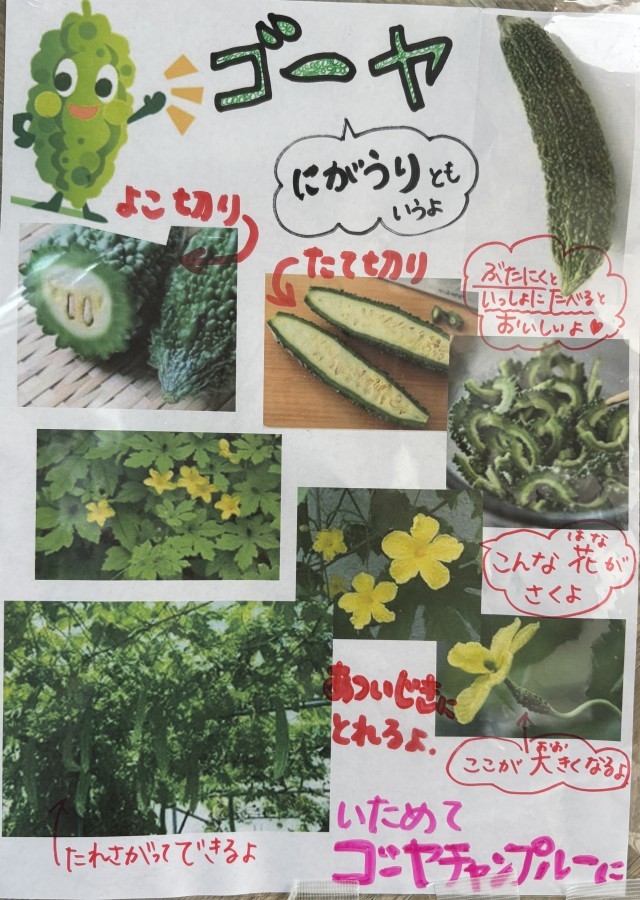 ゴーヤ
にがうりとも
いうよ
よこ切り
たて切り
ぶたにくと
いっしょにたべると
おいしいよ♥
はな
こんな花が
さくよ
あついじきに
とれるよ.
おお
ここが大きくなるよ
たれさがってできるよ
いためて
ゴーヤチャンプルーに